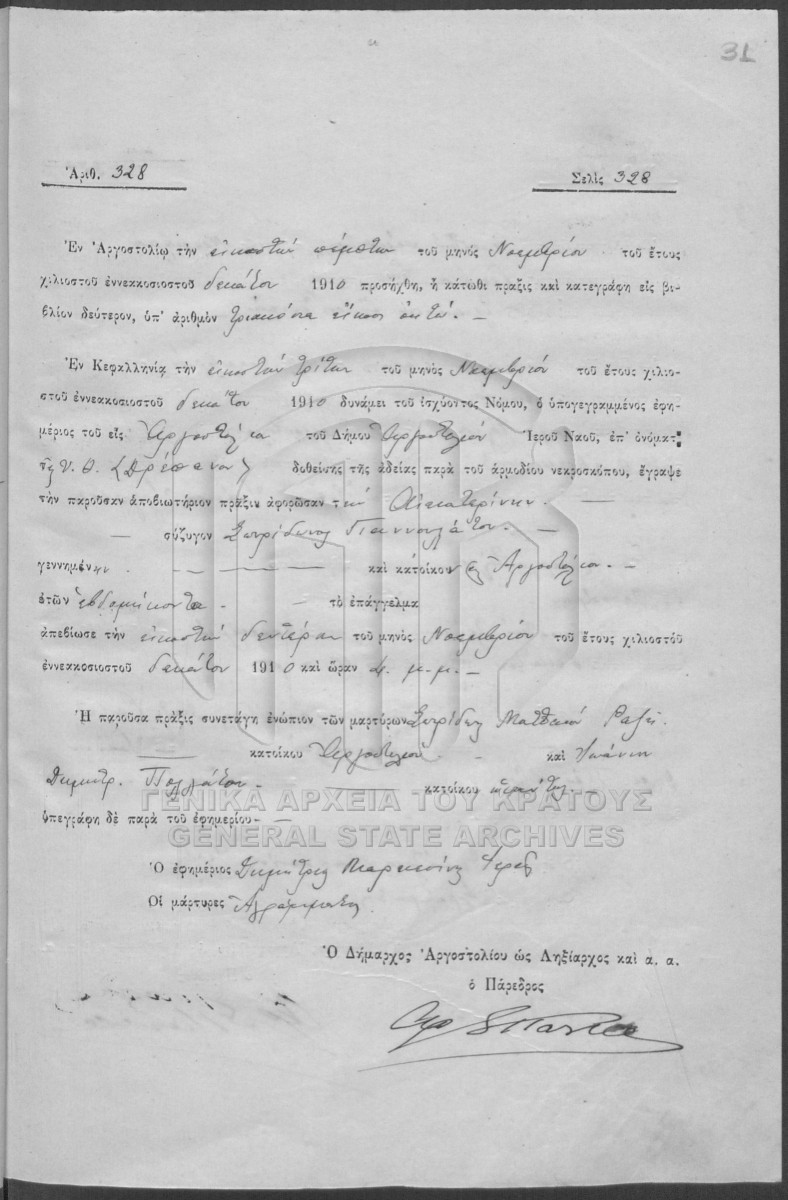 31
Ἀριθ. 328
Σελὶς 328
Ἐν Ἀργοστολίῳ τὴν εἰκοστὴν πέμπτην τοῦ μηνὸς Νοεμβρίου τοῦ ἔτους
χιλιοστοῦ ἐννεακοσιοστοῦ δεκάτου 1910 προσήχθη, ἡ κάτωθι πρᾶξις καὶ κατεγράφη εἰς βι-
βλίον δεύτερον, ὑπ' ἀριθμὸν τριακόσια εἴκοσι ὀκτώ. —
Ἐν Κεφαλληνίᾳ τὴν εἰκοστὴν τρίτην τοῦ μηνὸς Νοεμβρίου τοῦ ἔτους χιλιο-
στοῦ ἐννεακοσιοστοῦ δεκάτου 1910 δυνάμει τοῦ ἰσχύοντος Νόμου, ὁ ὑπογεγραμμένος ἐφη-
μέριος τοῦ εἰς Ἀργοστόλιον τοῦ Δήμου Ἀργοστολίου Ἱεροῦ Ναοῦ, ἐπ' ὀνόματι
τῆς Υ. Θ. (Δρέπανου) δοθείσης τῆς ἀδείας παρὰ τοῦ ἁρμοδίου νεκροσκόπου, ἔγραψε
τὴν παροῦσαν ἀποβιωτήριον πρᾶξιν ἀφορῶσαν τὴν Αἰκατερίνην. —
— σύζυγον Σπυρίδωνος Γιαννουλάτου. —
γεννημένην — καὶ κάτοικον εἰς Ἀργοστόλιον. —
ἐτῶν ἑβδομήκοντα. — τὸ ἐπάγγελμα
ἀπεβίωσε τὴν εἰκοστὴν δευτέραν τοῦ μηνὸς Νοεμβρίου τοῦ ἔτους χιλιοστοῦ
ἐννεακοσιοστοῦ δεκάτου 1910 καὶ ὥραν 4 μ.μ. —
Ἡ παροῦσα πρᾶξις συνετάγη ἐνώπιον τῶν μαρτύρων Σπυρίδων Ματθαίου
— κατοίκου Ἀργοστολίου. — καὶ Ἰωάννου
Δημητρ. Πολλάτου. — κατοίκου
ΓΕΝΙΚΑ ΑΡΧΕΙΑ ΤΟΥ ΚΡΑΤΟΥΣ
ὑπεγράφη δὲ παρὰ τοῦ ἐφημερίου — —
GENERAL STATE ARCHIVES
Ὁ ἐφημέριος Δημήτριος Ἱερεύς
Οἱ μάρτυρες Ἀγράμματοι
Ὁ Δήμαρχος Ἀργοστολίου ὡς Ληξίαρχος καὶ α. α.
ὁ Πάρεδρος